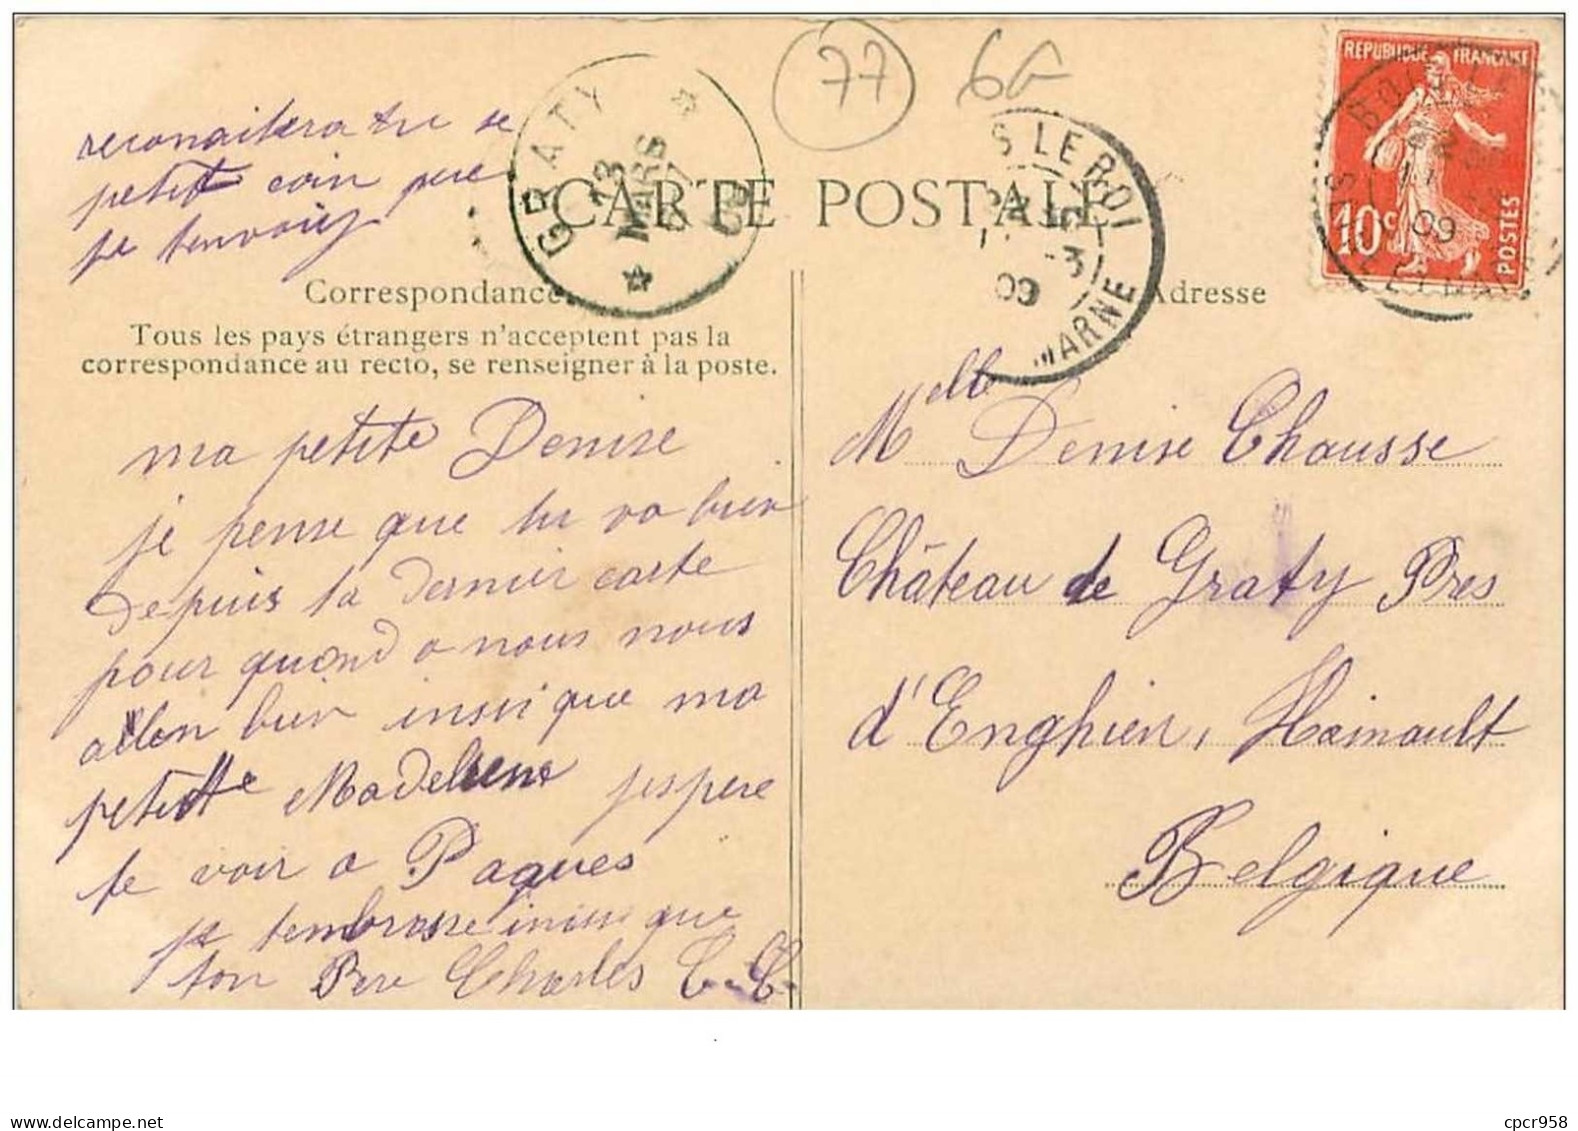 77 6G
reconaitera tu se
petit coin que
je tenvoie
GRATY
13
MARS
09
S LE ROI
MARNE
09
REPUBLIQUE FRANCAISE
10c
POSTES
09
CARTE POSTALE
Correspondance
Adresse
Tous les pays étrangers n'acceptent pas la
correspondance au recto, se renseigner à la poste.
ma petite Denise
je pense que tu va bien
depuis ta dernier carte
pour quand a nous nous
allon bien insi que ma
petitte Madeleine jespere
te voir a Paques
je tembrasse insi que
ton Pere Charles C. C.
Melle Denise Chausse
Château de Graty Pres
d'Enghien, Hainault
Belgique
cpcr958